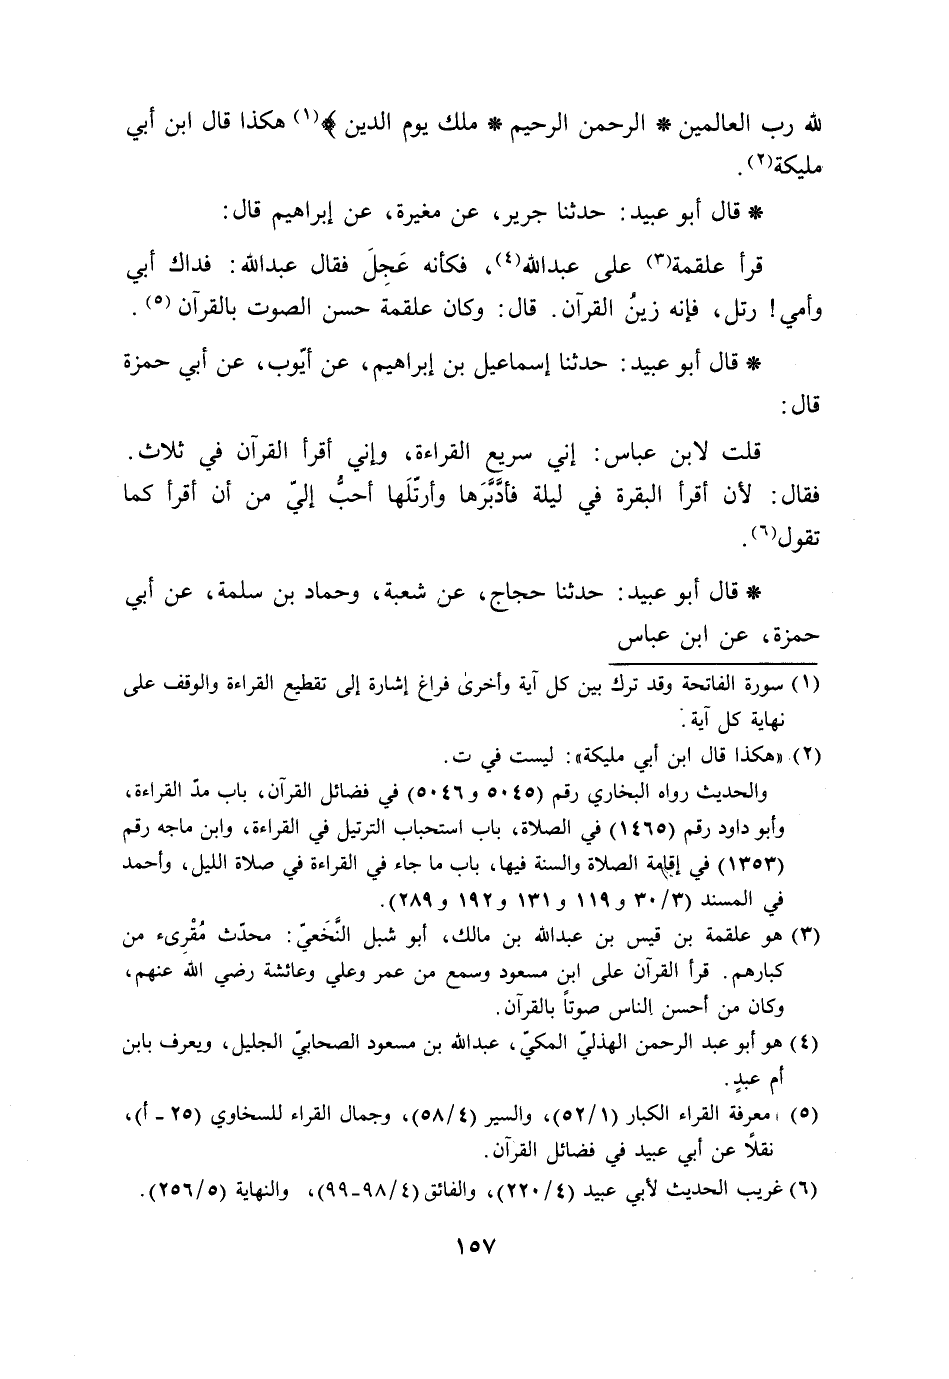 لله رب العالمين * الرحمن الرحيم * ملك يوم الدين ﴾(١) هكذا قال ابن أبي
مليكة(٢).
* قال أبو عبيد: حدثنا جرير، عن مغيرة، عن إبراهيم قال:
قرأ علقمة(٣) على عبدالله(٤)، فكأنه عَجِلَ فقال عبدالله: فداك أبي
وأمي! رتل، فإنه زينُ القرآن. قال: وكان علقمة حسن الصوت بالقرآن (٥).
* قال أبو عبيد: حدثنا إسماعيل بن إبراهيم، عن أيّوب، عن أبي حمزة
قال:
قلت لابن عباس: إني سريع القراءة، وإني أقرأ القرآن في ثلاث.
فقال: لأن أقرأ البقرة في ليلة فأدَّبَّرَها وأرتّلَها أحبُّ إليّ من أن أقرأ كما
تقول(٦).
* قال أبو عبيد: حدثنا حجاج، عن شعبة، وحماد بن سلمة، عن أبي
حمزة، عن ابن عباس
(١) سورة الفاتحة وقد ترك بين كل آية وأخرى فراغ إشارة إلى تقطيع القراءة والوقف على
نهاية كل آية.
(٢) «هكذا قال ابن أبي مليكة»: ليست في ت.
والحديث رواه البخاري رقم (٥٠٤٥ و ٥٠٤٦) في فضائل القرآن، باب مدّ القراءة،
وأبو داود رقم (١٤٦٥) في الصلاة، باب استحباب الترتيل في القراءة، وابن ماجه رقم
(١٣٥٣) في إقامة الصلاة والسنة فيها، باب ما جاء في القراءة في صلاة الليل، وأحمد
في المسند (٣/ ٣٠ و ١١٩ و ١٣١ و ١٩٢ و ٢٨٩).
(٣) هو علقمة بن قيس بن عبدالله بن مالك، أبو شبل النَّخَعيّ: محدّث مُقْرِىء من
كبارهم. قرأ القرآن على ابن مسعود وسمع من عمر وعلي وعائشة رضي الله عنهم،
وكان من أحسن الناس صوتاً بالقرآن.
(٤) هو أبو عبد الرحمن الهذليّ المكيّ، عبدالله بن مسعود الصحابيّ الجليل، ويعرف بابن
أم عبدٍ.
(٥) معرفة القراء الكبار (١/ ٥٢)، والسير (٤/ ٥٨)، وجمال القراء للسخاوي (٢٥ - أ)،
نقلاً عن أبي عبيد في فضائل القرآن.
(٦) غريب الحديث لأبي عبيد (٤/ ٢٢٠)، والفائق(٤/ ٩٨-٩٩)، والنهاية (٥/ ٢٥٦).
١٥٧